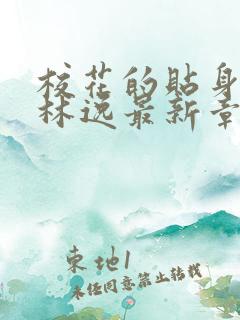 校花的贴身
林逸最新章
东地1
未经同意禁止转载